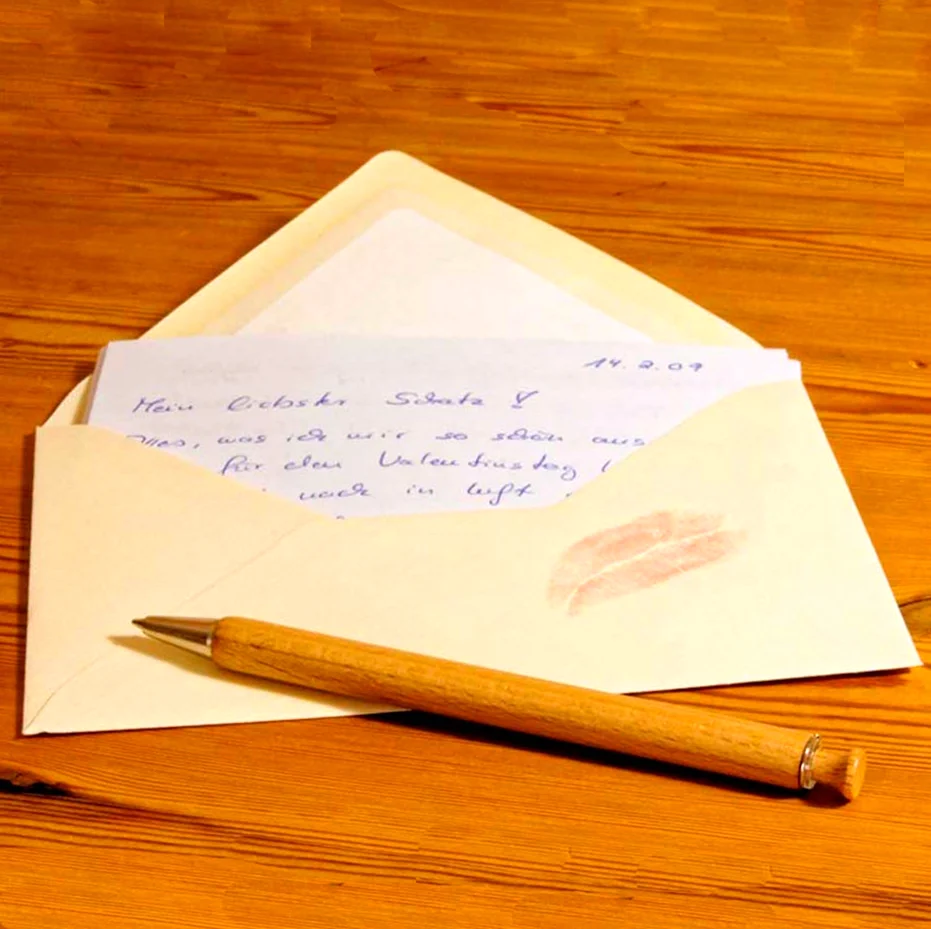 14.2.09
Mein liebster Schatz !
Alles, was ich mir so schön aus
für den Valentinstag
nach in Luft